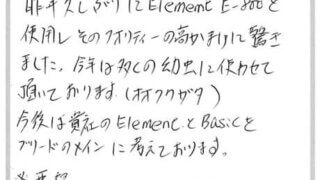 昨年久しぶりにElement E-800を
使用しそのクオリティーの高かまりに驚き
ました。今年は多くの幼虫に使わせて
頂いております。(オオクワガタ)
今後は貴社のElementとBasicを
ブリードのメインに考えております。